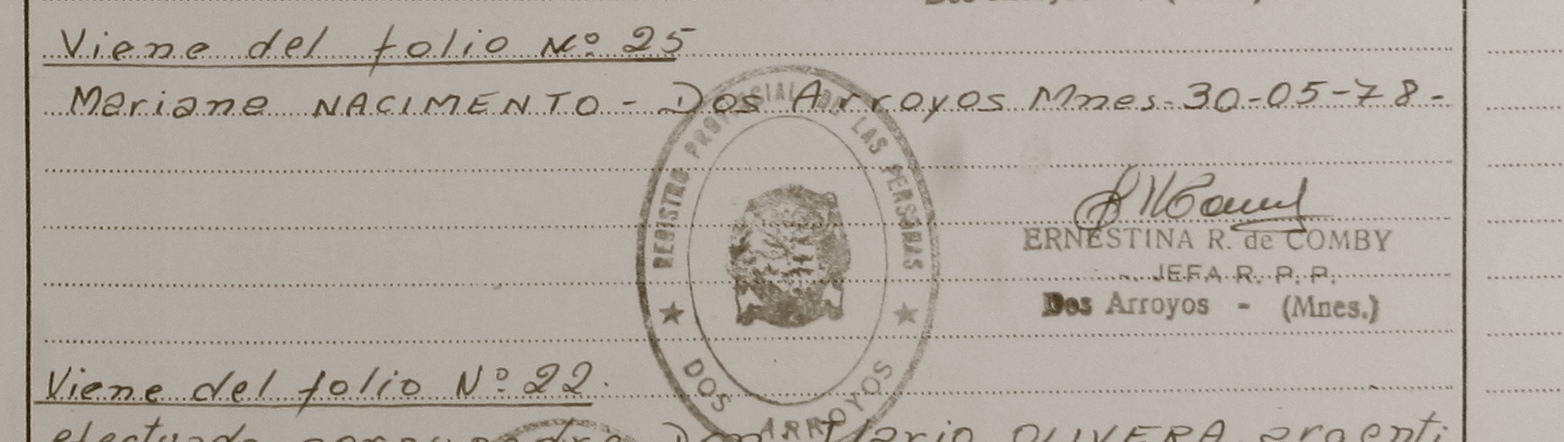 Viene del folio Nº 25
Mariane NACIMENTO - Dos Arroyos Mnes. 30-05-78-
REGISTRO PROVINCIAL DE LAS PERSONAS
DOS ARROYOS
ERNESTINA R. de COMBY
JEFA R. P. P.
Dos Arroyos - (Mnes.)
Viene del folio Nº 22.
OLIVERA